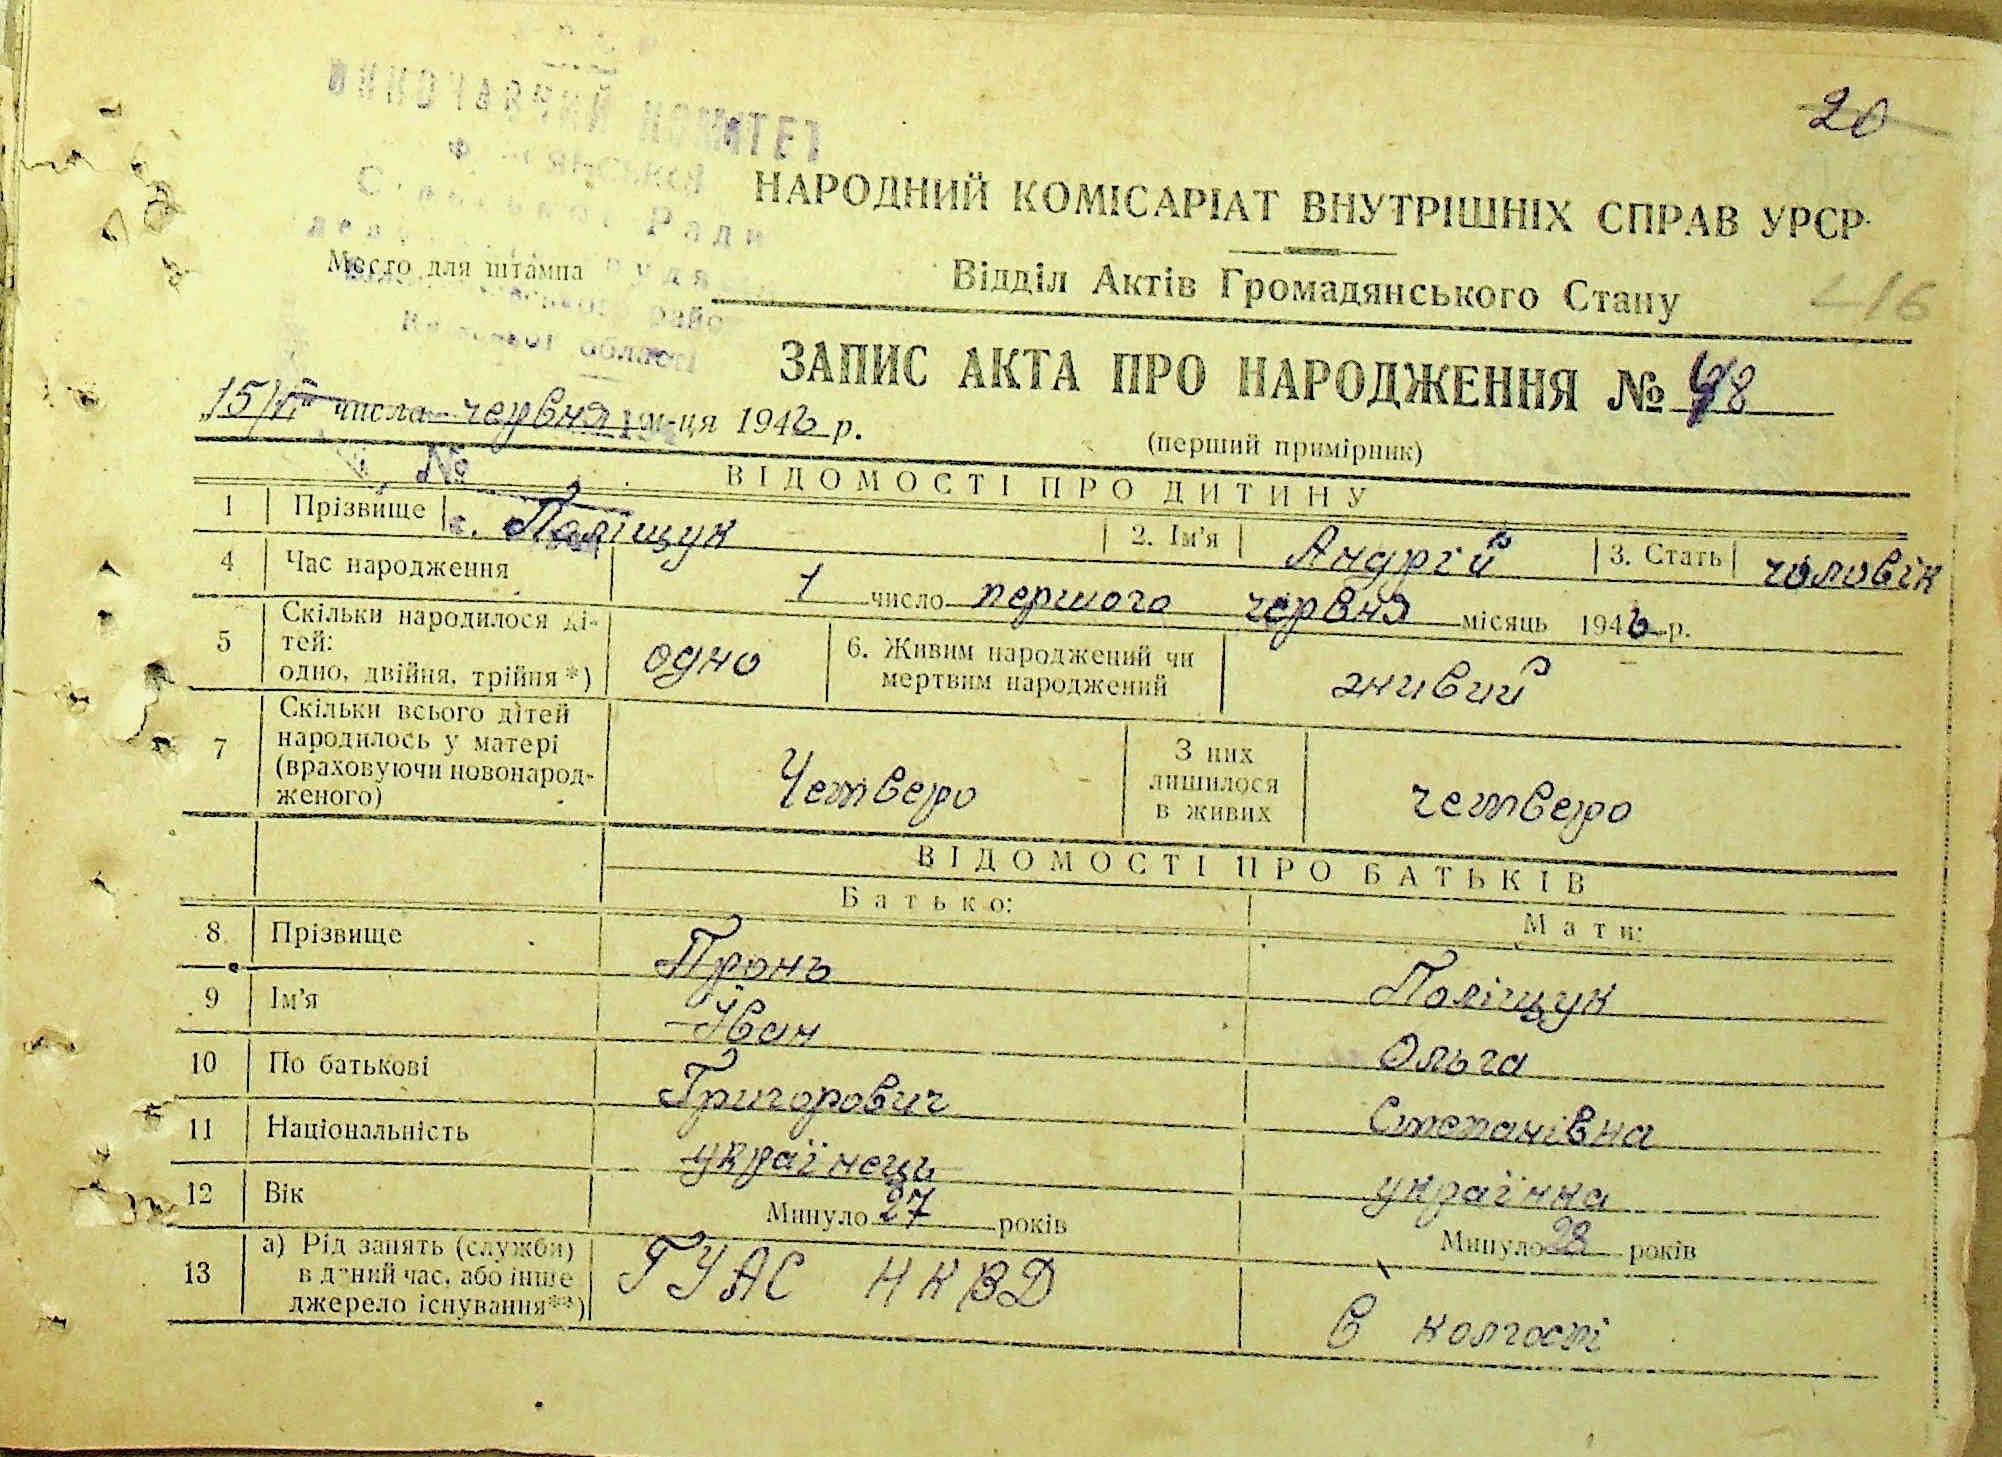 20
НАРОДНИЙ КОМІСАРІАТ ВНУТРІШНІХ СПРАВ УРСР
Место для штампа
Відділ Актів Громадянського Стану
416
області
ЗАПИС АКТА ПРО НАРОДЖЕННЯ № 48
15/VI числа червня м-ця 1946 р.
(перший примірник)
№
ВІДОМОСТІ ПРО ДИТИНУ
1 Прізвище Поліщук 2. Ім'я Андрій 3. Стать чоловік
4 Час народження 1 число першого червня місяць 1946 р.
5 Скільки народилося ді-
тей:
одно, двійня, трійня*) одно 6. Живим народжений чи
мертвим народжений живий
7 Скільки всього дітей
народилось у матері
(враховуючи новонарод-
женого) Четверо З них
лишилося
в живих четверо
ВІДОМОСТІ ПРО БАТЬКІВ
Батько: Мати:
8 Прізвище Пронь Поліщук
9 Ім'я Іван Ольга
10 По батькові Григорович Степанівна
11 Національність українець українка
12 Вік Минуло 27 років Минуло 28 років
13 а) Рід занять (служби)
в даний час, або інше
джерело існування**) ГУАС НКВД В колгоспі